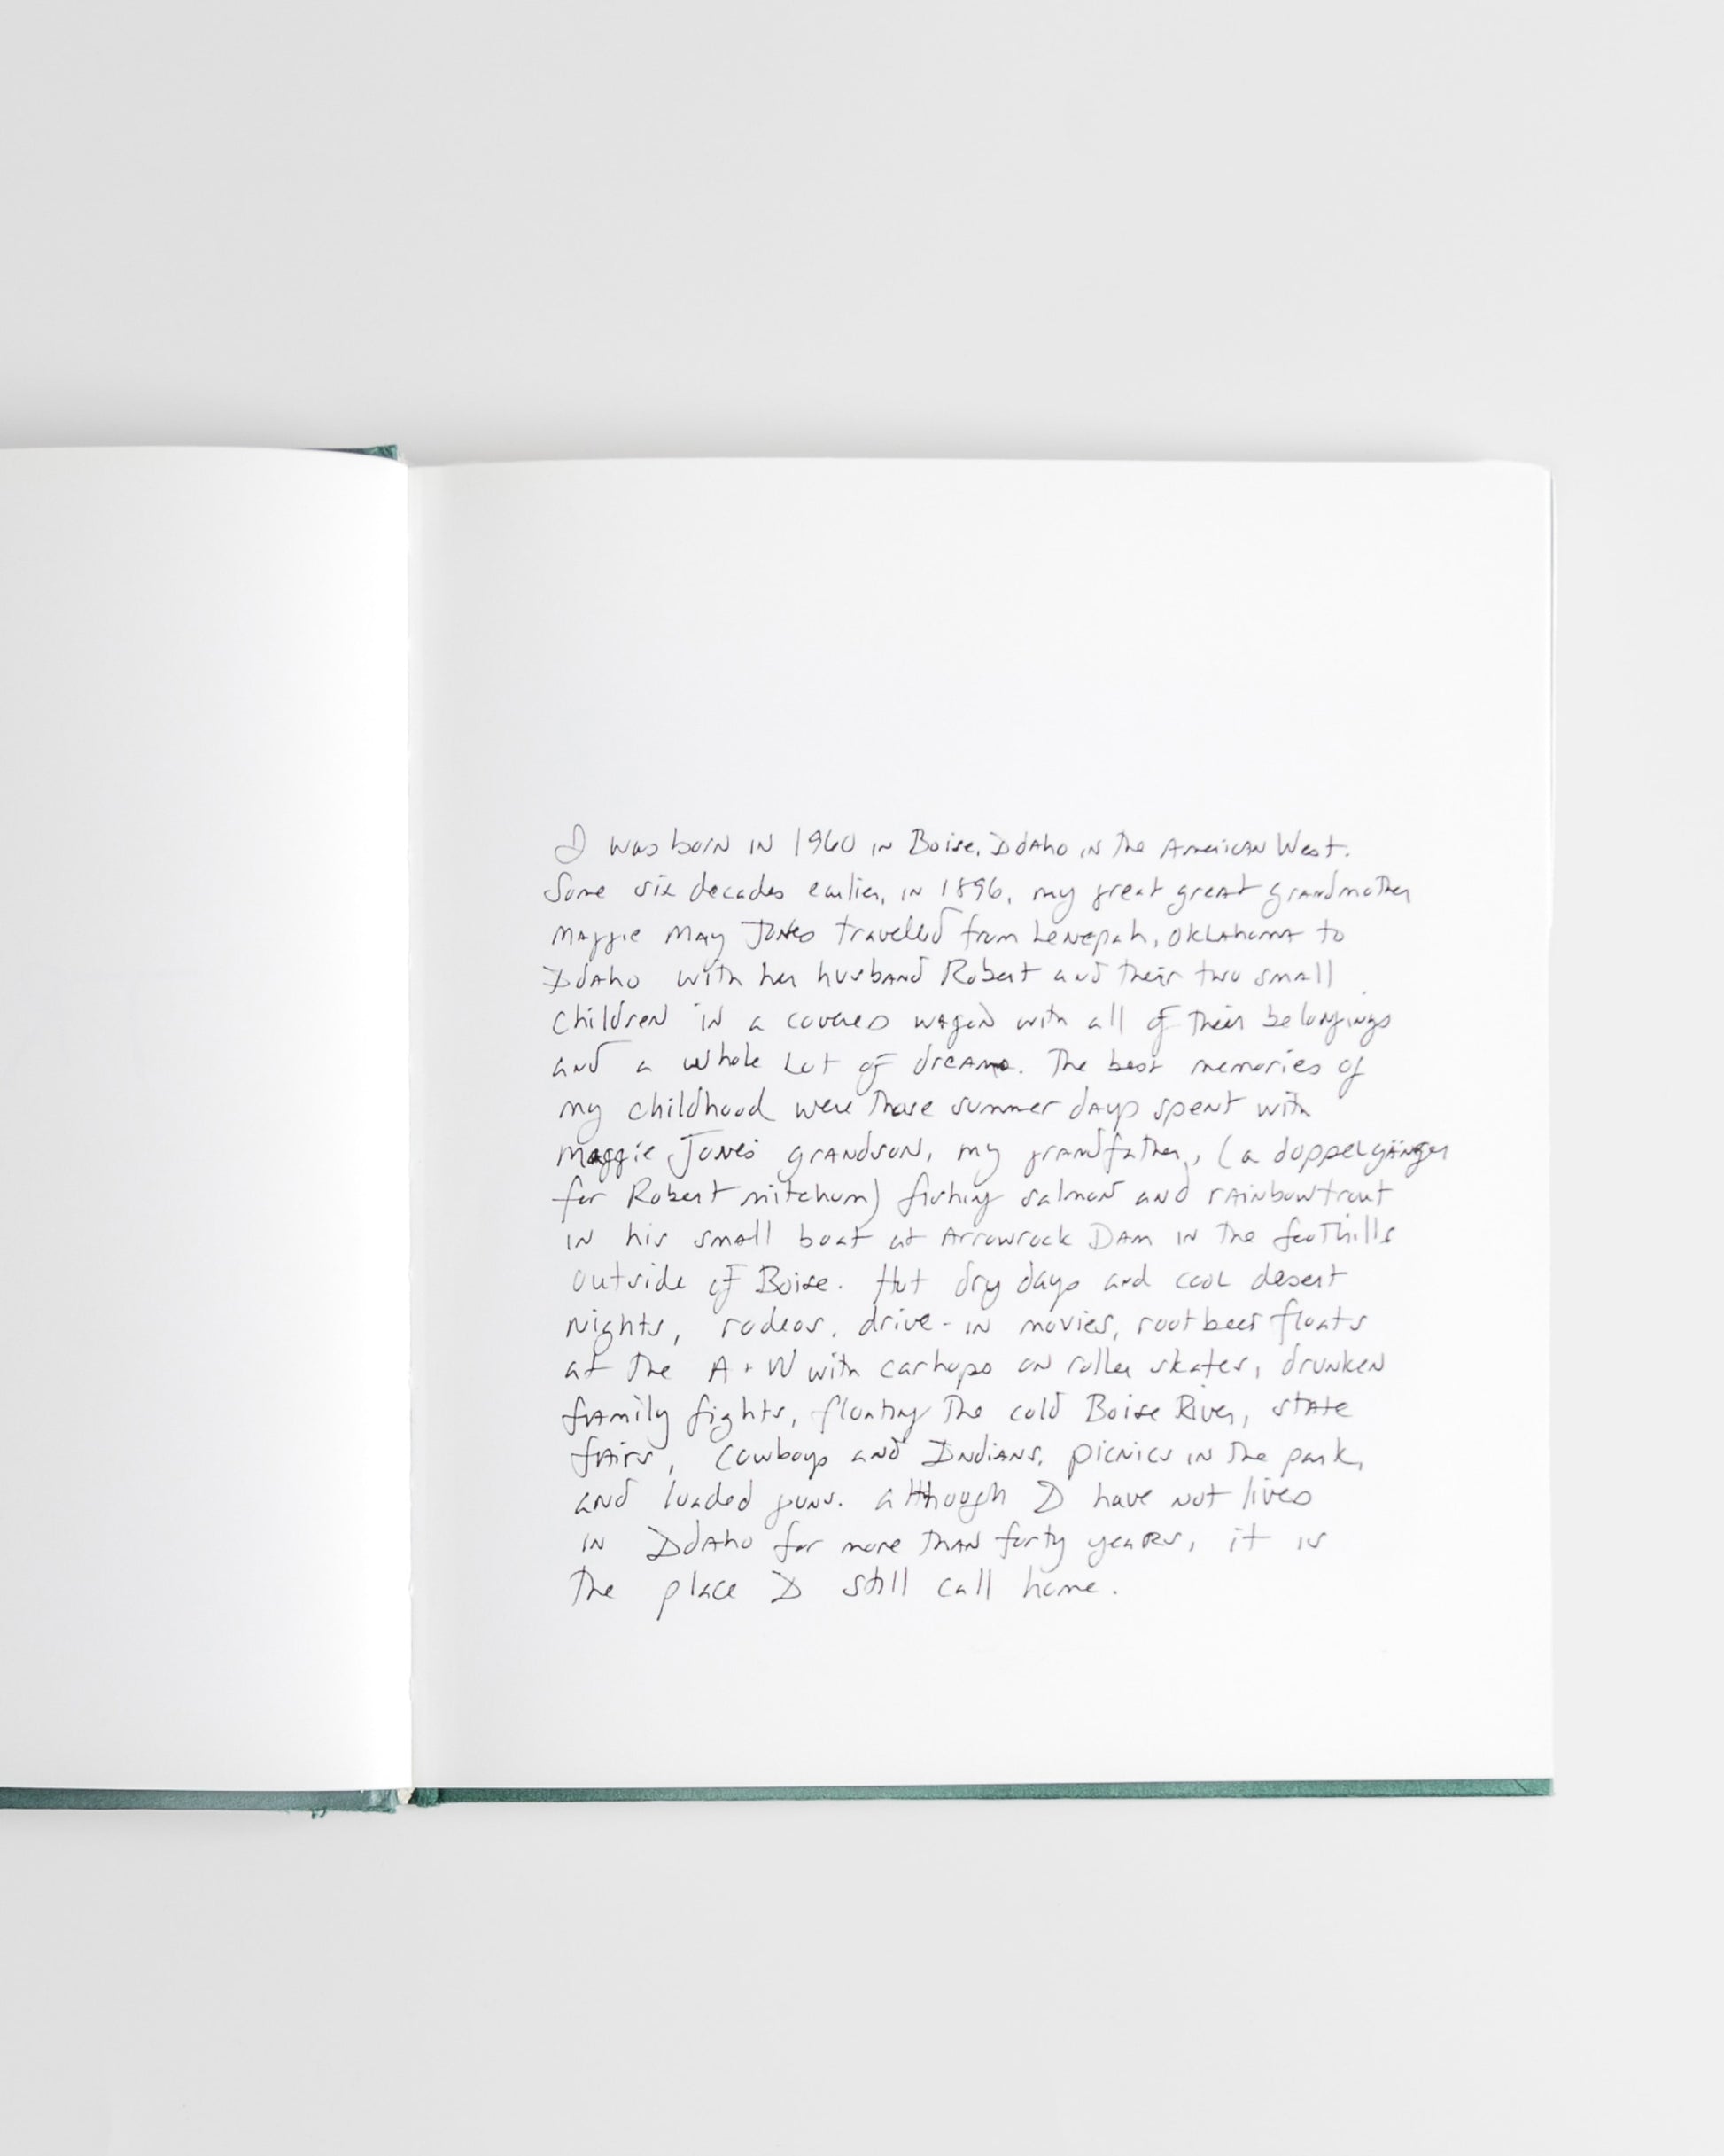 I was born in 1960 in Boise, Idaho in the American West.
Some six decades earlier, in 1896, my great great grandmother
Maggie May Jones traveled from Lenepah, Oklahoma to
Idaho with her husband Robert and their two small
children in a covered wagon with all of their belongings
and a whole lot of dreams. The best memories of
my childhood were those summer days spent with
Maggie Jones' grandson, my grandfather, (a doppelgänger
for Robert Mitchum) fishing salmon and rainbow trout
in his small boat at Arrowrock Dam in the foothills
outside of Boise. Hot dry days and cool desert
nights, rodeos, drive-in movies, root beer floats
at the A+W with carhops on roller skates, drunken
family fights, floating the cold Boise River, state
fairs, Cowboys and Indians, picnics in the park,
and loaded guns. Although I have not lived
in Idaho for more than forty years, it is
the place I still call home.